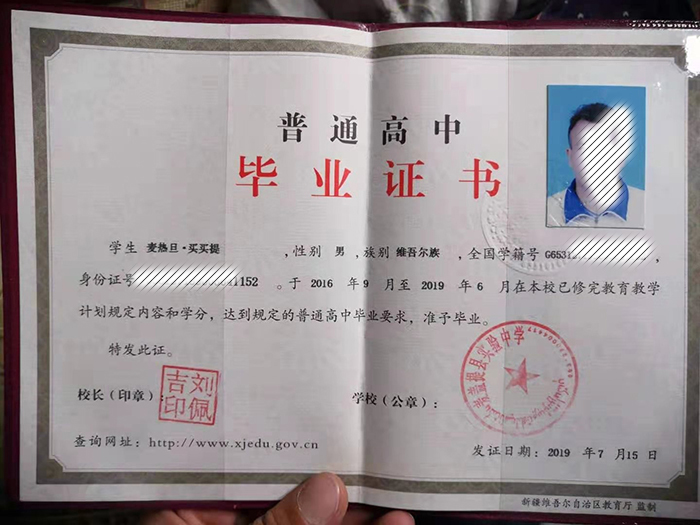 普通高中
毕业证书
学生 麦热旦·买买提 ,性别 男,族别 维吾尔族,全国学籍号 G6531
身份证号 1152 。于 2016 年 9 月至 2019 年 6 月在本校已修完教育教学
计划规定内容和学分,达到规定的普通高中毕业要求,准予毕业。
特发此证。
校长(印章):
刘佩吉印
学校(公章):
英吉提县实验中学
查询网址:http://www.xjedu.gov.cn
发证日期:2019 年 7 月 15 日
新疆维吾尔自治区教育厅 监制